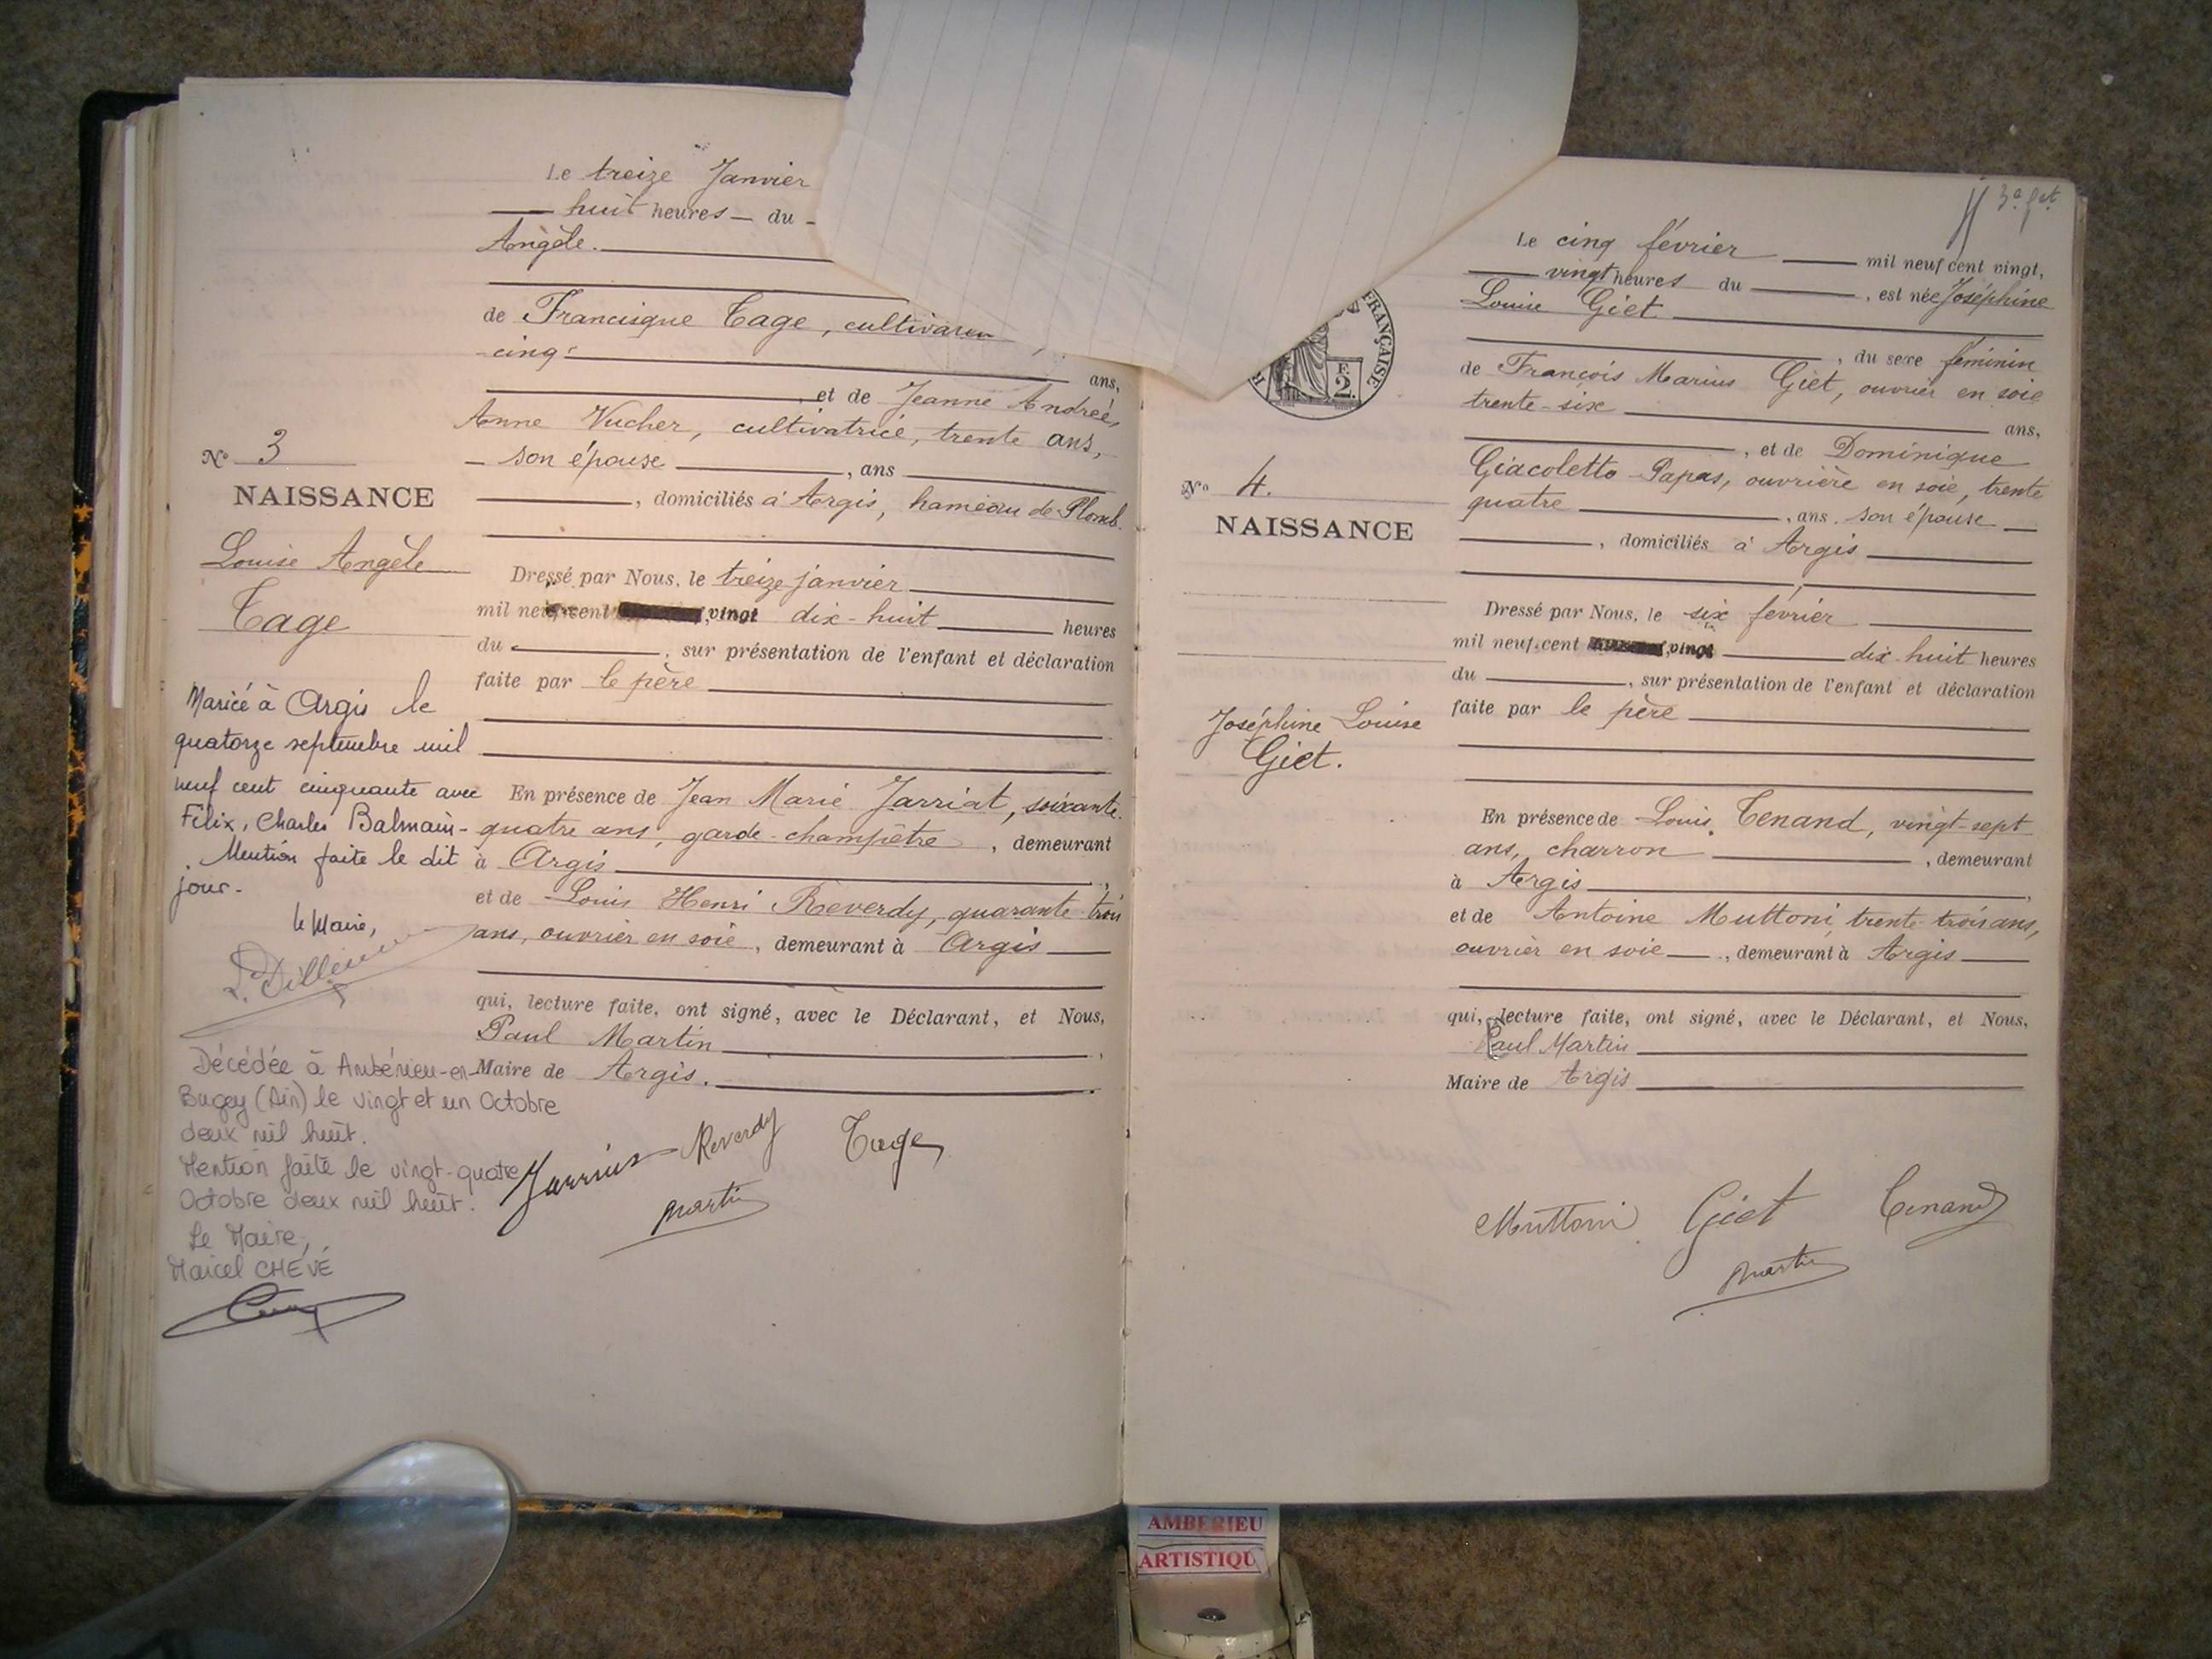 Le treize Janvier
huit heures du
Angèle.
de Francisque Tage, cultivateur
cinq
ans,
et de Jeanne Andrée,
Anne Vucher, cultivatrice, trente ans,
son épouse , ans
, domiciliés à Argis, hameau de Plomb.
N° 3
NAISSANCE
Louise Angèle
Tage
Dressé par Nous, le treize janvier
mil neuf cent vingt dix-huit heures
du , sur présentation de l'enfant et déclaration
faite par le père
En présence de Jean Marie Jarriat, soixante
quatre ans, garde-champêtre , demeurant
à Argis
et de Louis Henri Reverdy, quarante trois
ans, ouvrier en soie, demeurant à Argis
qui, lecture faite, ont signé, avec le Déclarant, et Nous,
Paul Martin
Maire de Argis.
Reverdy Tage
Martin
Mariée à Argis le
quatorze septembre mil
neuf cent cinquante avec
Félix, Charles Balmain-
Mention faite le dit
jour.
le Maire,
Décédée à Ambérieu-en-
Bugey (Ain) le vingt et un Octobre
deux mil huit.
Mention faite le vingt-quatre
Octobre deux mil huit.
Le Maire,
Marcel CHEVÉ
FRANÇAISE
F.
2.
Le cinq février mil neuf cent vingt,
vingt heures du , est née Joséphine
Louise Giet
, du sexe féminin
de François Marius Giet, ouvrier en soie
trente-six
ans,
, et de Dominique
Giacoletto-Papas, ouvrière en soie, trente
quatre , ans. son épouse
, domiciliés à Argis
N° 4.
NAISSANCE
Joséphine Louise
Giet.
Dressé par Nous, le six février
mil neuf cent vingt dix huit heures
du , sur présentation de l'enfant et déclaration
faite par le père
En présence de Louis Tenand, vingt-sept
ans, charron , demeurant
à Argis
et de Antoine Muttoni, trente-trois ans,
ouvrier en soie , demeurant à Argis
qui, lecture faite, ont signé, avec le Déclarant, et Nous,
Paul Martin
Maire de Argis
Muttoni Giet Tenand
Martin
AMBERIEU
ARTISTIQU